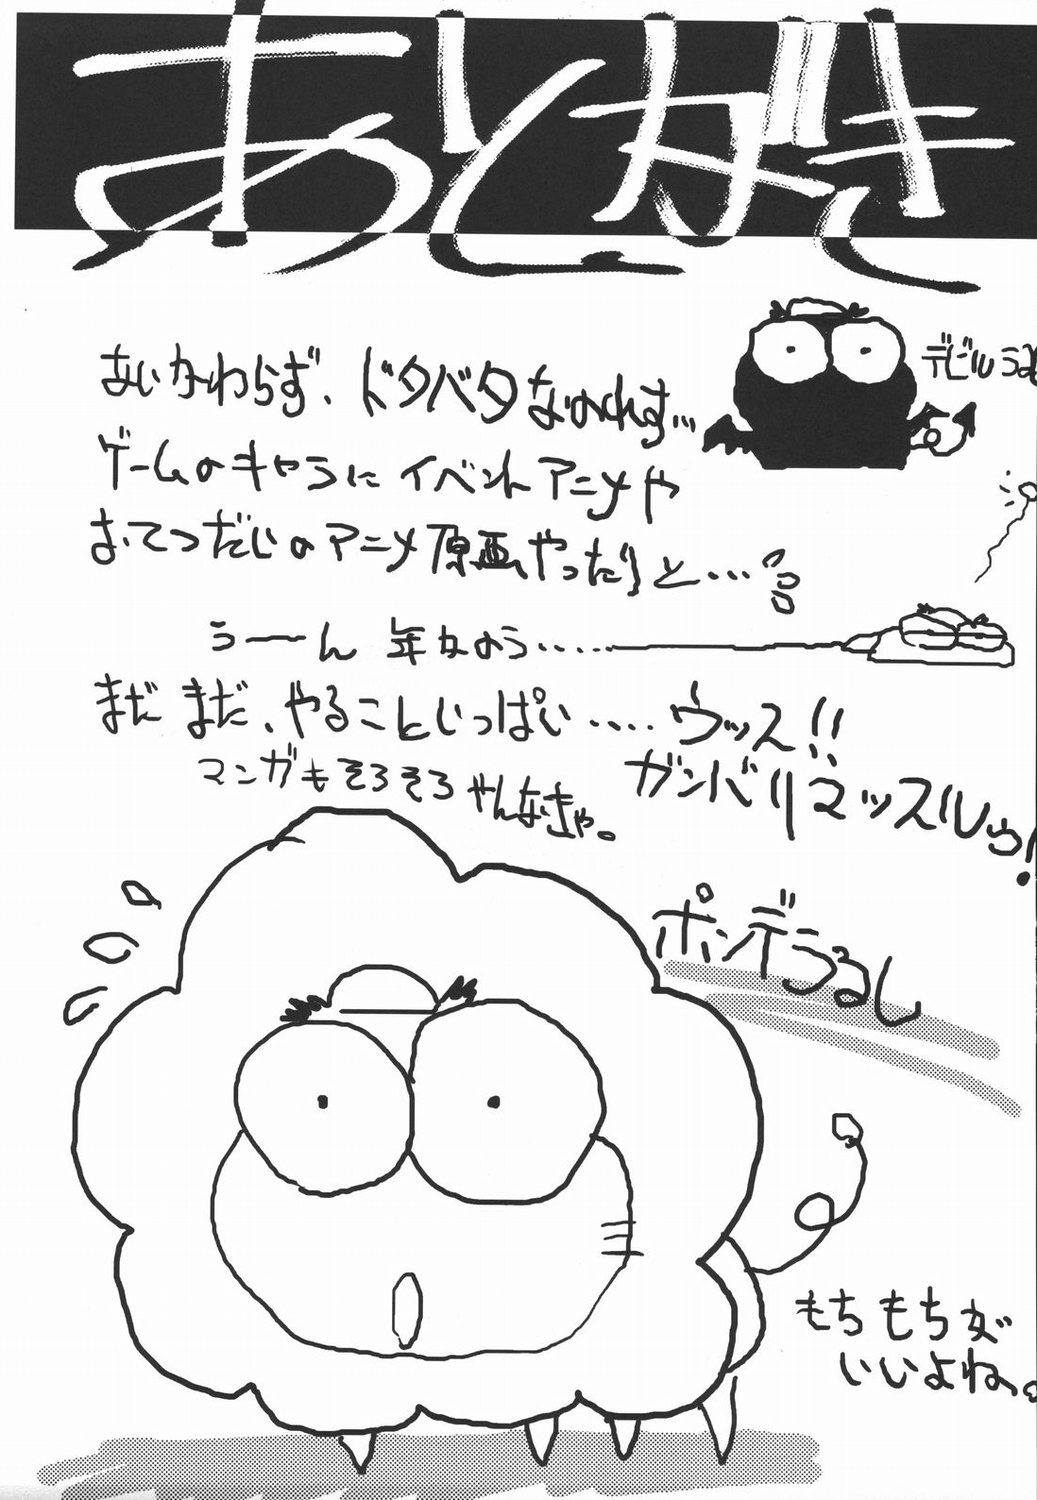 あとがき
あいかわらず、ドタバタなのれす…
デビルうる
ゲームのキャラにイベントアニメや
おてつだいのアニメ原画やったりと…
うーん 年かのう……
まだまだ、やることいっぱい…… ウッス!!
マンガもそろそろやんなきゃ。
ガンバリマッスルゥ!
ポンデうるし
もちもちが
いいよね。